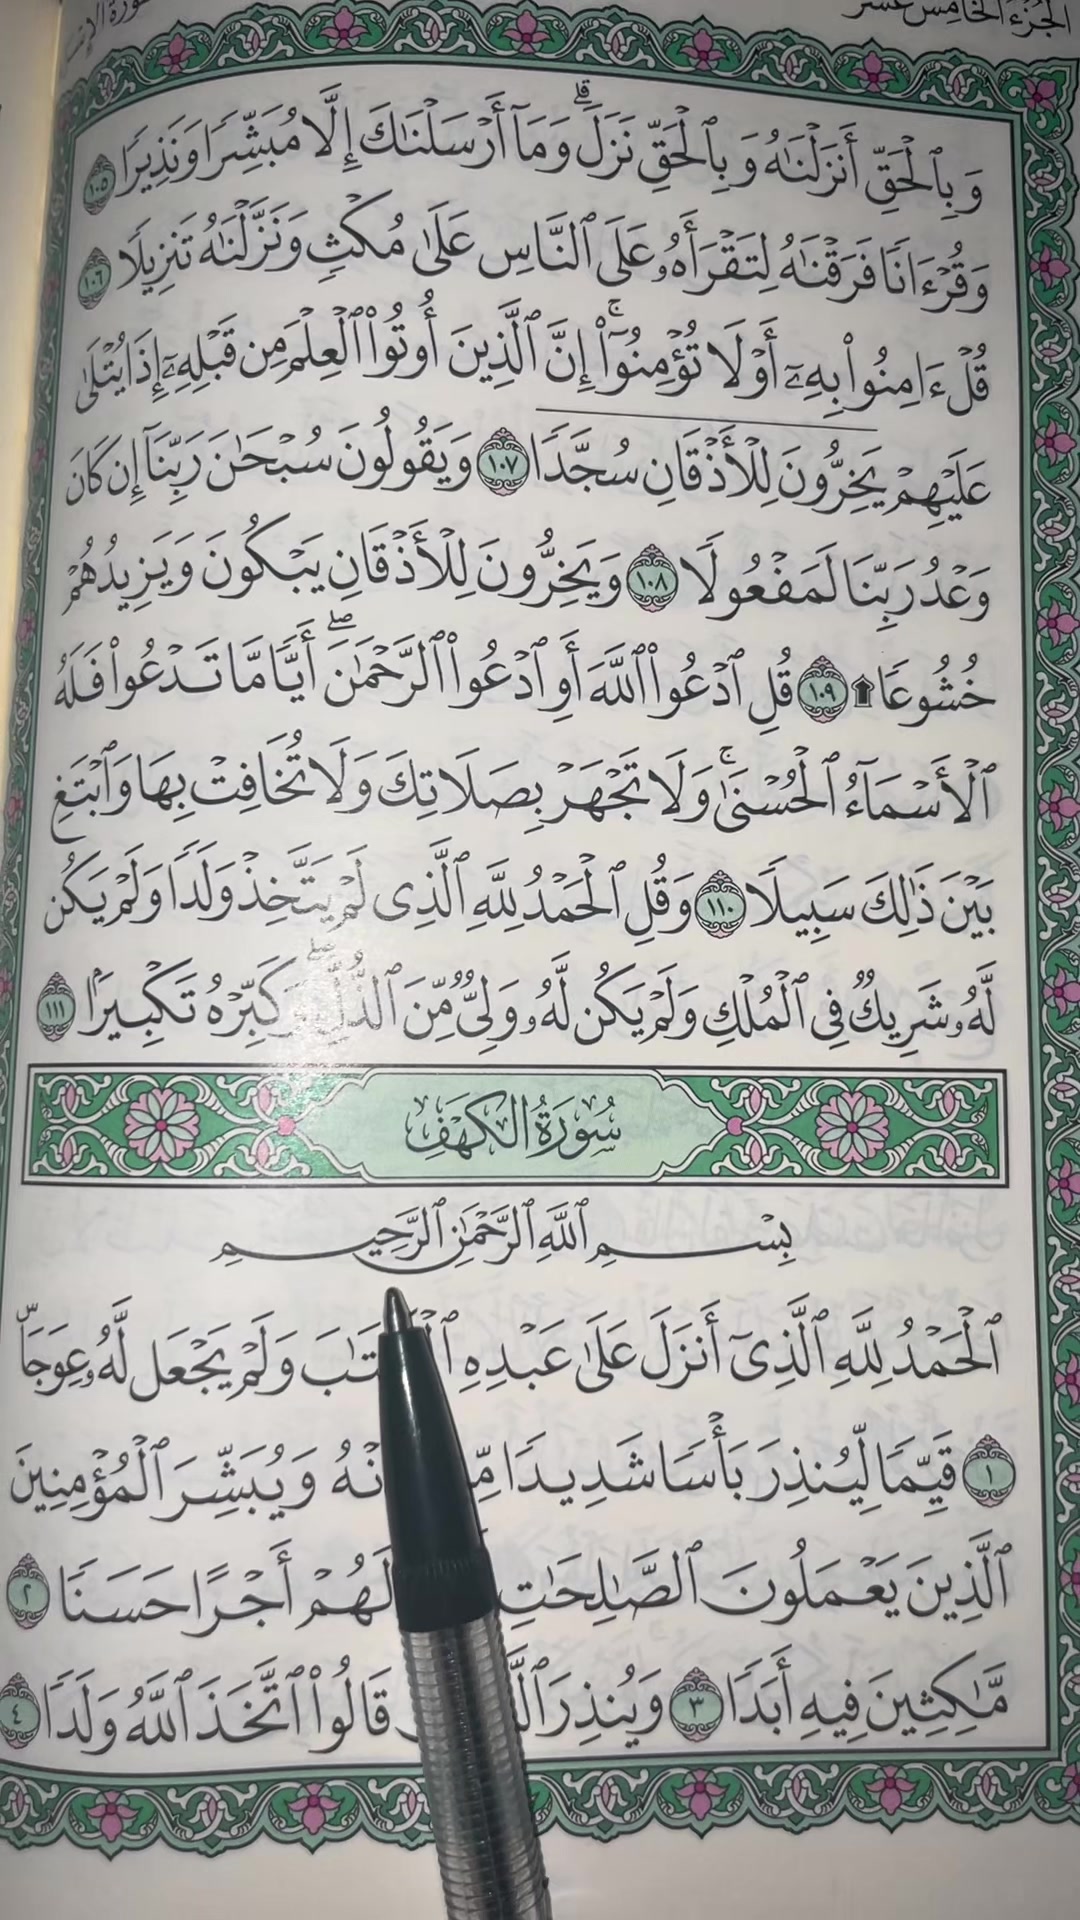 الجزء الخامس عشر
سورة الإس
وَبِٱلۡحَقِّ أَنزَلۡنَٰهُ وَبِٱلۡحَقِّ نَزَلَۗ وَمَآ أَرۡسَلۡنَٰكَ إِلَّا مُبَشِّرٗا وَنَذِيرٗا ١٠٥
وَقُرۡءَانٗا فَرَقۡنَٰهُ لِتَقۡرَأَهُۥ عَلَى ٱلنَّاسِ عَلَىٰ مُكۡثٖ وَنَزَّلۡنَٰهُ تَنزِيلٗا ١٠٦
قُلۡ ءَامِنُواْ بِهِۦٓ أَوۡ لَا تُؤۡمِنُوٓاْۚ إِنَّ ٱلَّذِينَ أُوتُواْ ٱلۡعِلۡمَ مِن قَبۡلِهِۦٓ إِذَا يُتۡلَىٰ
عَلَيۡهِمۡ يَخِرُّونَۤ لِلۡأَذۡقَانِۤ سُجَّدٗا ١٠٧ وَيَقُولُونَ سُبۡحَٰنَ رَبِّنَآ إِن كَانَ
وَعۡدُ رَبِّنَا لَمَفۡعُولٗا ١٠٨ وَيَخِرُّونَ لِلۡأَذۡقَانِ يَبۡكُونَ وَيَزِيدُهُمۡ
خُشُوعٗا۩ ١٠٩ قُلِ ٱدۡعُواْ ٱللَّهَ أَوِ ٱدۡعُواْ ٱلرَّحۡمَٰنَۖ أَيّٗا مَّا تَدۡعُواْ فَلَهُ
ٱلۡأَسۡمَآءُ ٱلۡحُسۡنَىٰۚ وَلَا تَجۡهَرۡ بِصَلَاتِكَ وَلَا تُخَافِتۡ بِهَا وَٱبۡتَغِ
بَيۡنَ ذَٰلِكَ سَبِيلٗا ١١٠ وَقُلِ ٱلۡحَمۡدُ لِلَّهِ ٱلَّذِي لَمۡ يَتَّخِذۡ وَلَدٗا وَلَمۡ يَكُن
لَّهُۥ شَرِيكٞ فِي ٱلۡمُلۡكِ وَلَمۡ يَكُن لَّهُۥ وَلِيّٞ مِّنَ ٱلذُّلِّۖ وَكَبِّرۡهُ تَكۡبِيرَۢا ١١١
سُورَةُ الكَهۡفِ
بِسۡمِ ٱللَّهِ ٱلرَّحۡمَٰنِ ٱلرَّحِيمِ
ٱلۡحَمۡدُ لِلَّهِ ٱلَّذِيٓ أَنزَلَ عَلَىٰ عَبۡدِهِ ٱلۡكِتَٰبَ وَلَمۡ يَجۡعَل لَّهُۥ عِوَجَاۜ
١ قَيِّمٗا لِّيُنذِرَ بَأۡسٗا شَدِيدٗا وَيُبَشِّرَ ٱلۡمُؤۡمِنِينَ
ٱلَّذِينَ يَعۡمَلُونَ ٱلصَّٰلِحَٰتِ لَهُمۡ أَجۡرًا حَسَنٗا ٢
مَّٰكِثِينَ فِيهِ أَبَدٗا ٣ وَيُنذِرَ قَالُواْ ٱتَّخَذَ ٱللَّهُ وَلَدٗا ٤